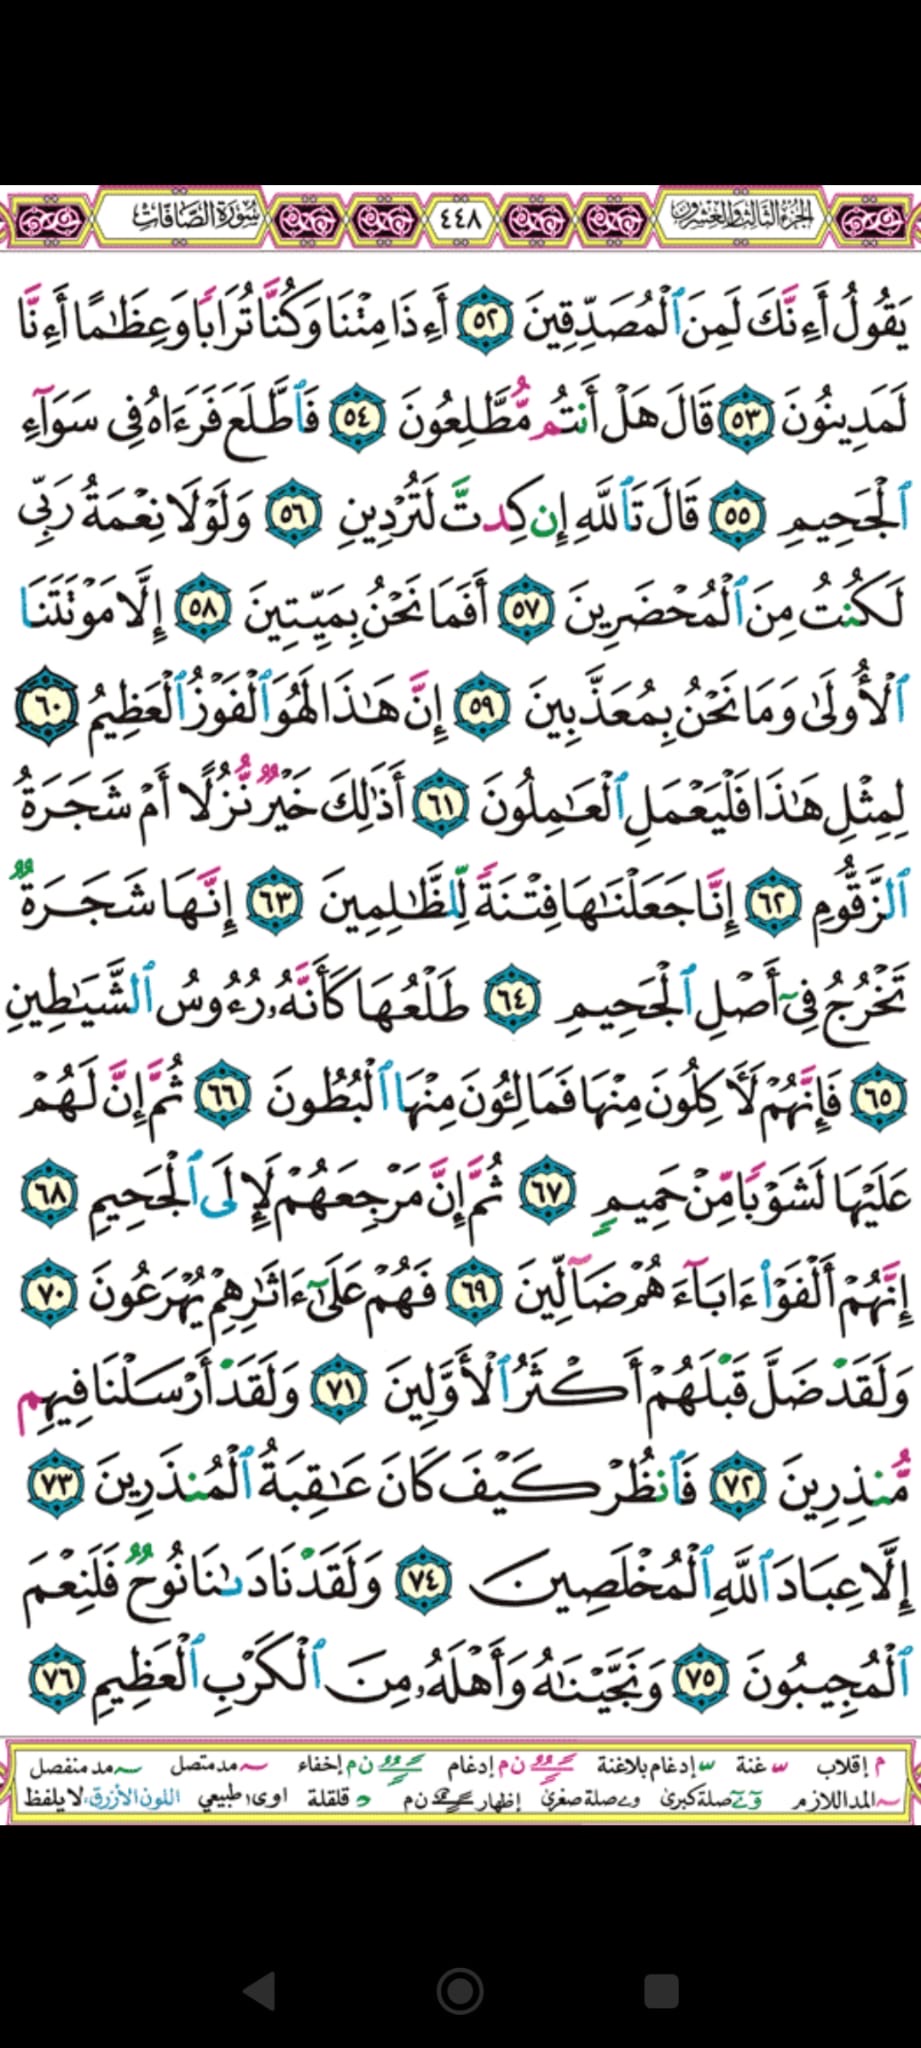 سُورَةُ الصَّافَّاتِ ٤٤٨ الجزء الثالث والعشرون
يَقُولُ أَءِنَّكَ لَمِنَ ٱلْمُصَدِّقِينَ ٥٢ أَءِذَا مِتْنَا وَكُنَّا تُرَابًا وَعِظَـٰمًا أَءِنَّا
لَمَدِينُونَ ٥٣ قَالَ هَلْ أَنتُم مُّطَّلِعُونَ ٥٤ فَٱطَّلَعَ فَرَءَاهُ فِى سَوَآءِ
ٱلْجَحِيمِ ٥٥ قَالَ تَٱللَّهِ إِن كِدتَّ لَتُرْدِينِ ٥٦ وَلَوْلَا نِعْمَةُ رَبِّى
لَكُنتُ مِنَ ٱلْمُحْضَرِينَ ٥٧ أَفَمَا نَحْنُ بِمَيِّتِينَ ٥٨ إِلَّا مَوْتَتَنَا
ٱلْأُولَىٰ وَمَا نَحْنُ بِمُعَذَّبِينَ ٥٩ إِنَّ هَـٰذَا لَهُوَ ٱلْفَوْزُ ٱلْعَظِيمُ ٦٠
لِمِثْلِ هَـٰذَا فَلْيَعْمَلِ ٱلْعَـٰمِلُونَ ٦١ أَذَٰلِكَ خَيْرٌ نُّزُلًا أَمْ شَجَرَةُ
ٱلزَّقُّومِ ٦٢ إِنَّا جَعَلْنَـٰهَا فِتْنَةً لِّلظَّـٰلِمِينَ ٦٣ إِنَّهَا شَجَرَةٌ
تَخْرُجُ فِىٓ أَصْلِ ٱلْجَحِيمِ ٦٤ طَلْعُهَا كَأَنَّهُۥ رُءُوسُ ٱلشَّيَـٰطِينِ
٦٥ فَإِنَّهُمْ لَـَٔاكِلُونَ مِنْهَا فَمَالِـُٔونَ مِنْهَا ٱلْبُطُونَ ٦٦ ثُمَّ إِنَّ لَهُمْ
عَلَيْهَا لَشَوْبًا مِّنْ حَمِيمٍ ٦٧ ثُمَّ إِنَّ مَرْجِعَهُمْ لَإِلَى ٱلْجَحِيمِ ٦٨
إِنَّهُمْ أَلْفَوْا۟ ءَابَآءَهُمْ ضَآلِّينَ ٦٩ فَهُمْ عَلَىٰٓ ءَاثَـٰرِهِمْ يُهْرَعُونَ ٧٠
وَلَقَدْ ضَلَّ قَبْلَهُمْ أَكْثَرُ ٱلْأَوَّلِينَ ٧١ وَلَقَدْ أَرْسَلْنَا فِيهِم
مُّنذِرِينَ ٧٢ فَٱنظُرْ كَيْفَ كَانَ عَـٰقِبَةُ ٱلْمُنذَرِينَ ٧٣
إِلَّا عِبَادَ ٱللَّهِ ٱلْمُخْلَصِينَ ٧٤ وَلَقَدْ نَادَىٰنَا نُوحٌ فَلَنِعْمَ
ٱلْمُجِيبُونَ ٧٥ وَنَجَّيْنَـٰهُ وَأَهْلَهُۥ مِنَ ٱلْكَرْبِ ٱلْعَظِيمِ ٧٦
م إقلاب غنة إدغام بلاغنة ن م إدغام ن م إخفاء مد متصل مد منفصل
المد اللازم صلة كبرى و ے صلة صغرى إظهار ن م قلقلة اوى، طبيعي اللون الأزرق، لا يلفظ